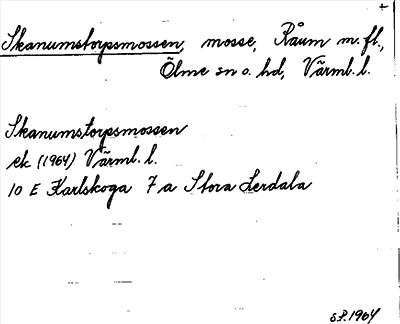 Skanumstorpsmossen, mosse, Råum m.fl.,
Ölme sn o. hd, Värml. l.
Skanumstorpsmossen
ek (1964) Värml. l.
10 E Karlskoga 7 a Stora Lerdala
S.P. 1964